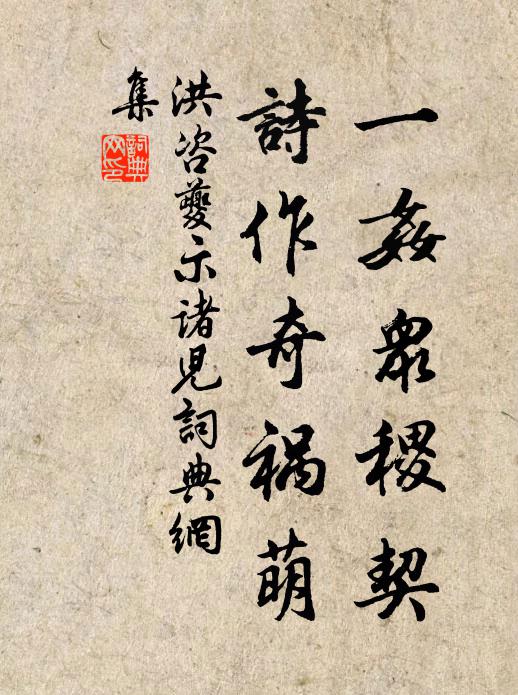 一姦眾稷契
詩作奇禍萌
洪咨夔示諸兒詞典網
集
詞典
网印